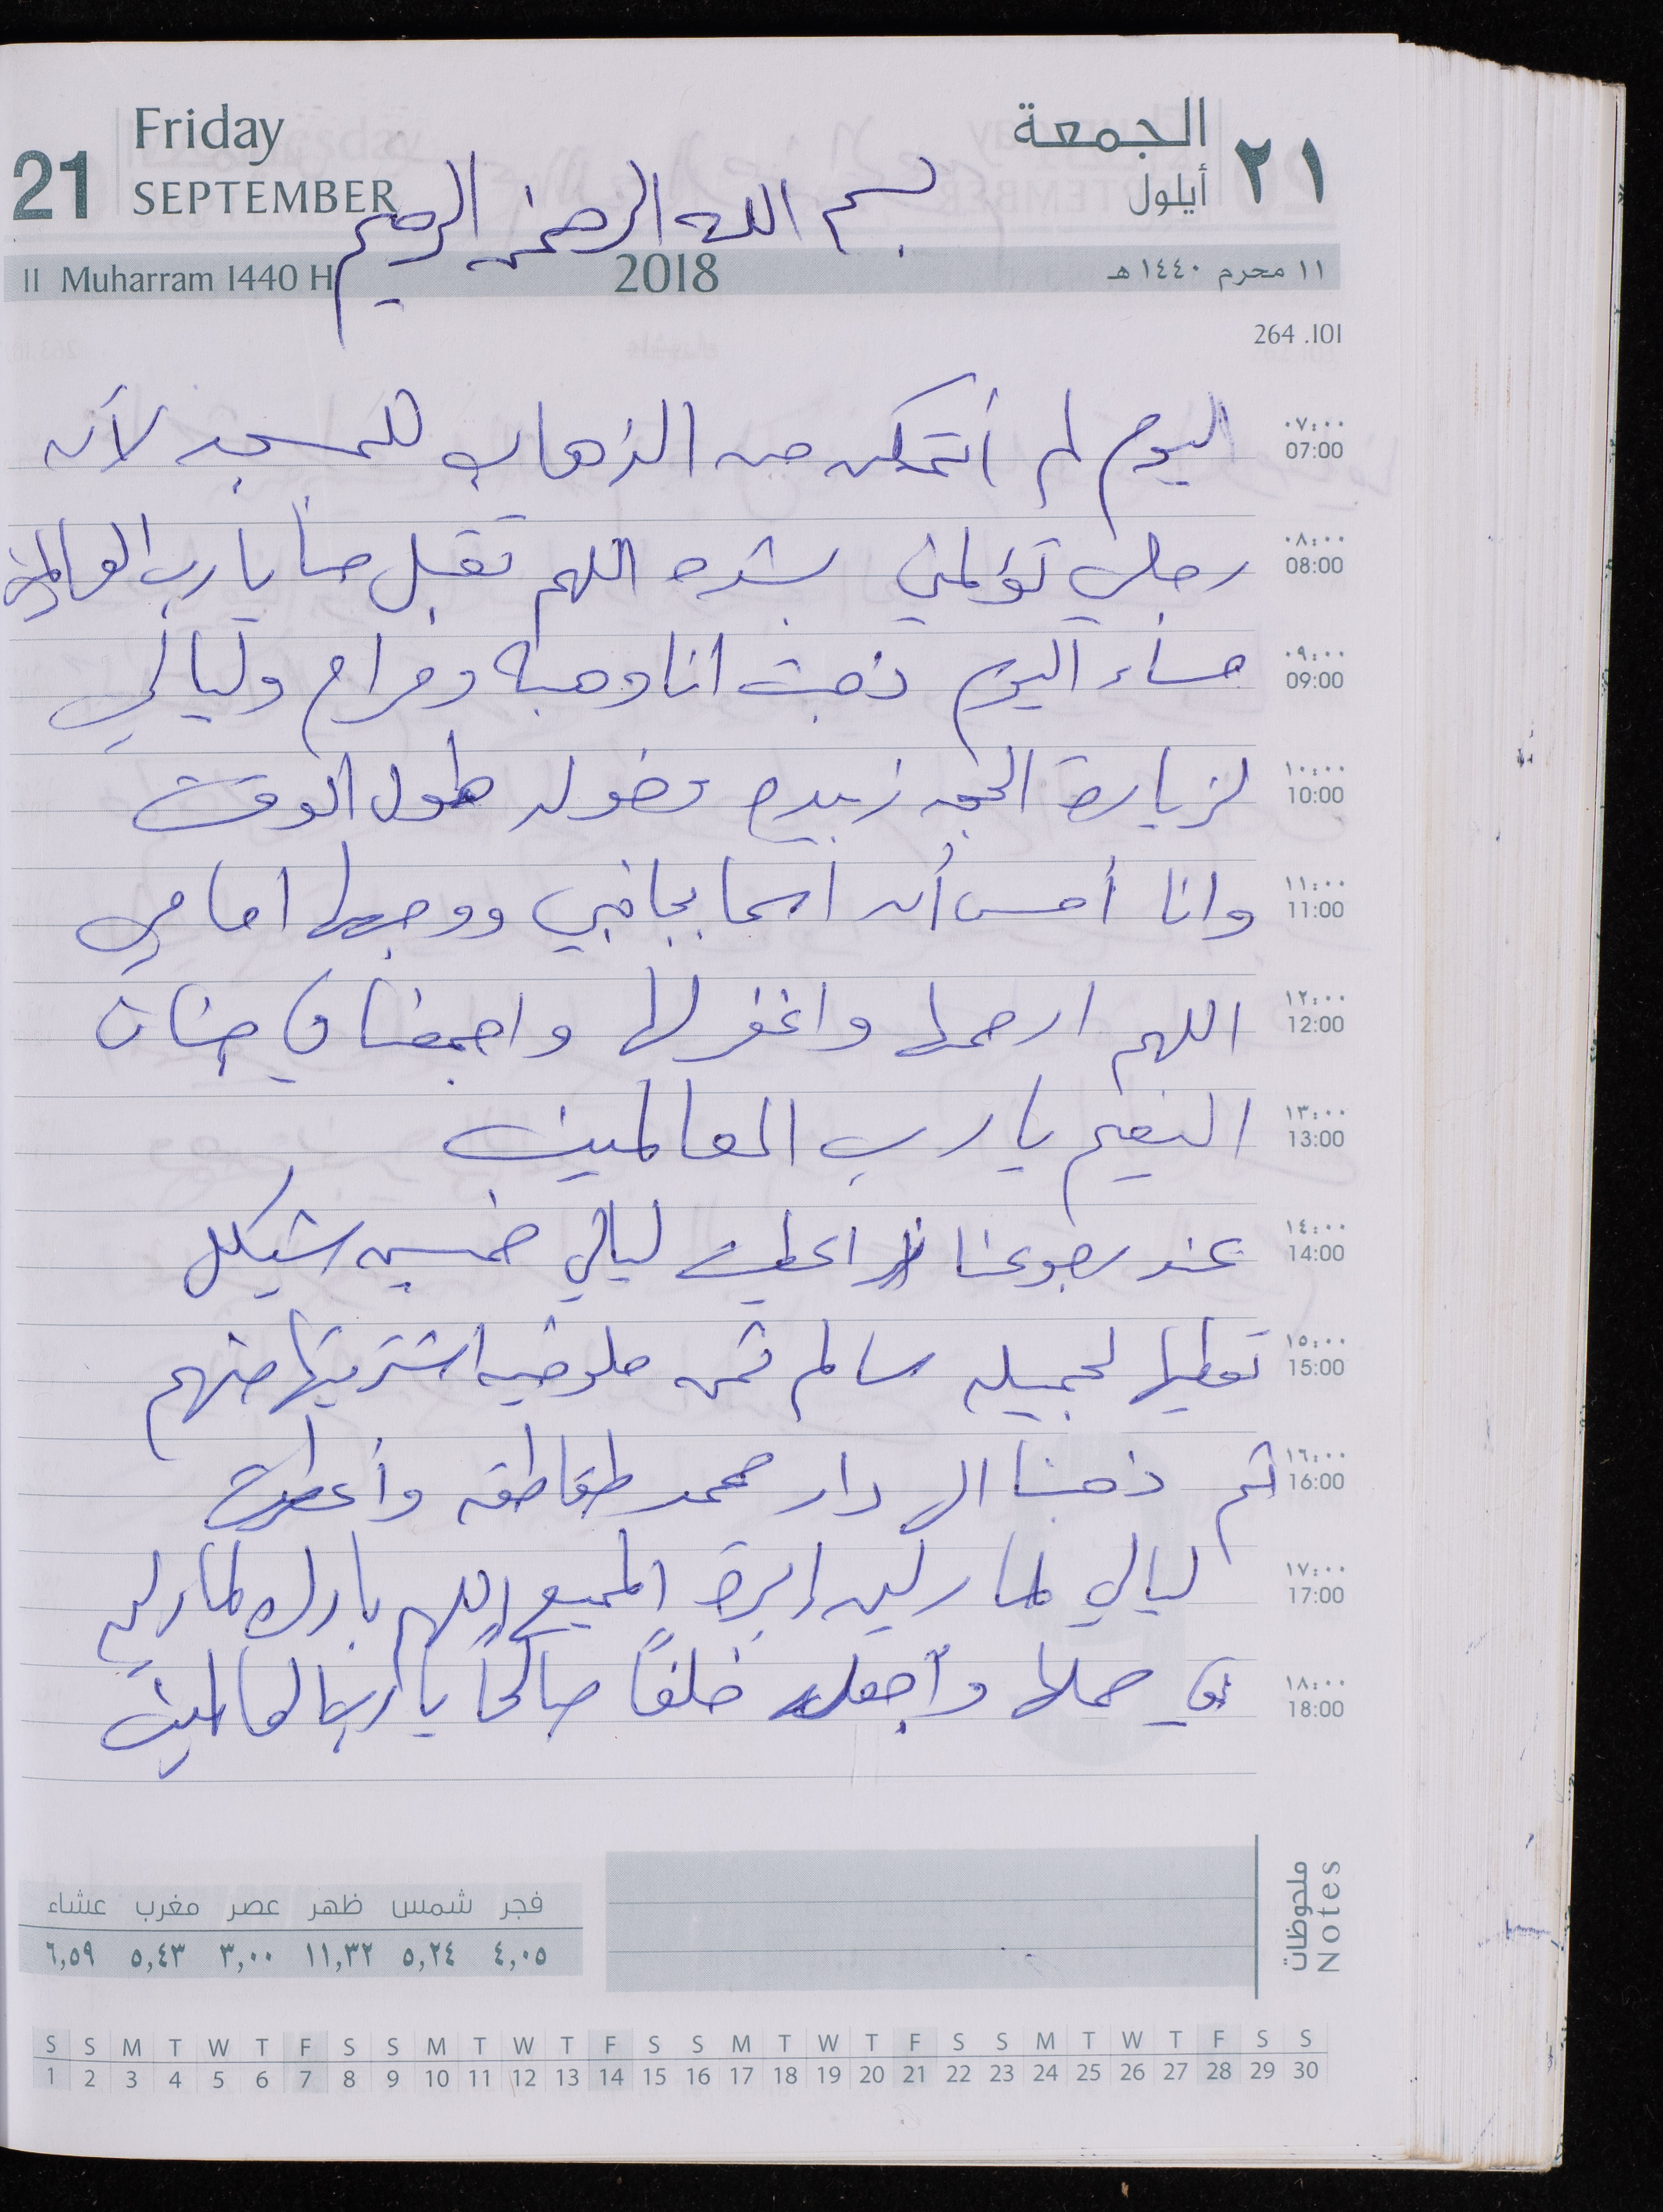 Friday
21
SEPTEMBER
الجمعة
٢١
أيلول
بسم الله الرحمن الرحيم
11 Muharram 1440 H
2018
١١ محرم ١٤٤٠ هـ
264 .101
٠٧:٠٠
07:00
اليوم لم أتمكن من الذهاب للمسجد لأن
٠٨:٠٠
08:00
رجلي تؤلمني بشده اللهم تقبل منا يا رب العالمين
٠٩:٠٠
09:00
مساء اليوم ذهبت انا وهبه ومرام وليالي
١٠:٠٠
10:00
لزيارة الحجه زبيده طول الوقت
١١:٠٠
11:00
وانا أحس أن اسما بجانبي ووجهها امامي
١٢:٠٠
12:00
اللهم ارحمها واغفر لها واجمعنا في جنات
١٣:٠٠
13:00
النعيم يا رب العالمين
١٤:٠٠
14:00
عند رجوعنا اعطيت ليالي خمسين شيكل
١٥:٠٠
15:00
تعطيها لجميله سالم ثمن ملوخيه اشتريتها منهم
١٦:٠٠
16:00
ثم ذهبنا الى دار محمد طقاطقه وأعطت
١٧:٠٠
17:00
ليالي لمارلين إبرة المميع اللهم بارك لمارلين
١٨:٠٠
18:00
في حملها وأجعله خلفاً صالحاً يا رب العالمين
ملحوظات
Notes
فجر شمس ظهر عصر مغرب عشاء
٤,٠٥ ٥,٢٤ ١١,٣٢ ٣,٠٠ ٥,٤٣ ٦,٥٩
S S M T W T F S S M T W T F S S M T W T F S S M T W T F S S
1 2 3 4 5 6 7 8 9 10 11 12 13 14 15 16 17 18 19 20 21 22 23 24 25 26 27 28 29 30